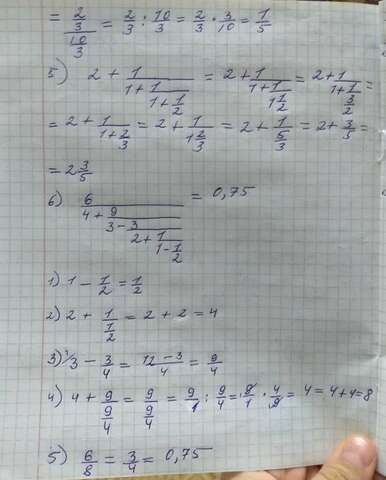 = 2/3 / 10/3 = 2/3 : 10/3 = 2/3 · 3/10 = 1/5
5) 2 + 1/(1 + 1/(1 + 1/2)) = 2 + 1/(1 + 1/(1 1/2)) = 2 + 1/(1 + 1/(3/2)) =
= 2 + 1/(1 + 2/3) = 2 + 1/(1 2/3) = 2 + 1/(5/3) = 2 + 3/5 =
= 2 3/5
6) 6/(4 + 9/(3 - 3/(2 + 1/(1 - 1/2)))) = 0,75
1) 1 - 1/2 = 1/2
2) 2 + 1/(1/2) = 2 + 2 = 4
3) 3 - 3/4 = (12 - 3)/4 = 9/4
4) 4 + 9/(9/4) = 9/(9/4) = 9/1 : 9/4 = 9/1 · 4/9 = 4 = 4 + 4 = 8
5) 6/8 = 3/4 = 0,75